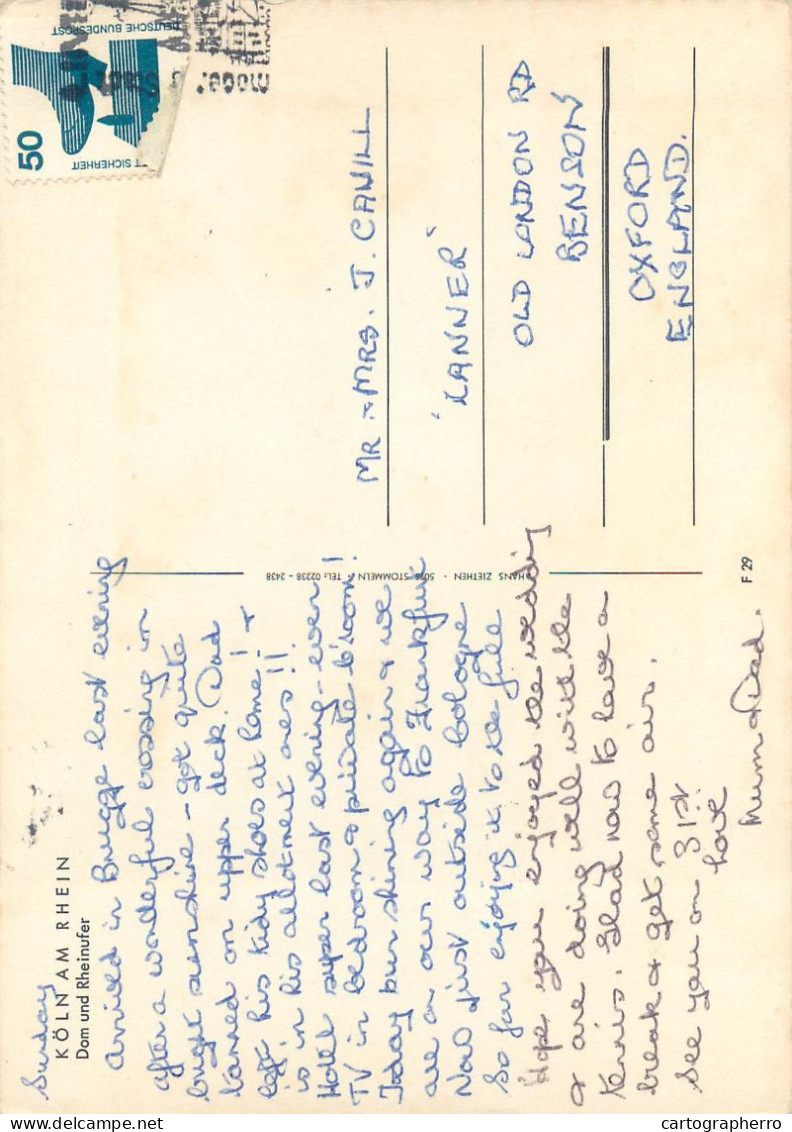 Sunday
KÖLN AM RHEIN
Dom und Rheinufer
Arrived in Brugge last evening
after a wonderful crossing in
bright sunshine - got quite
tanned on upper deck. Dad
left his tidy shoes at home! +
is in his allotment ones!!
Hotel super last evening - even
TV in bedroom + private b'room!
Today sun shining again + we
are on our way to Frankfurt
Now just outside Cologne
So far enjoying it to the full
Hope you enjoyed the wedding
+ are doing well with the
tennis. Glad now to have a
break + get some air.
See you on 31st
Love
Mum + Dad.
HANS ZIETHEN · 5026 STOMMELN · TEL: 02238 - 2438
F 29
DEUTSCHE BUNDESPOST
50
T SICHERHEIT
MR + MRS. J. CAHILL
'LANNER'
OLD LONDON RD
BENSON
OXFORD
ENGLAND.
cartographerro